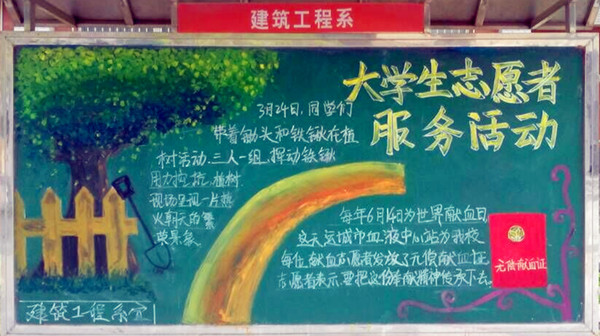 建筑工程系
大学生志愿者
服务活动
3月24日,同学们
带着锄头和铁锹在植
树活动,三人一组,挥动铁锹
用力挖坑,植树
现场呈现一片热
火朝天的繁
荣景象
每年6月14日为世界献血日
这天运城市血液中心站为我校
每位献血志愿者发放了无偿献血证
志愿者表示要把这份奉献精神传承下去。
无偿献血证
建筑工程系宣